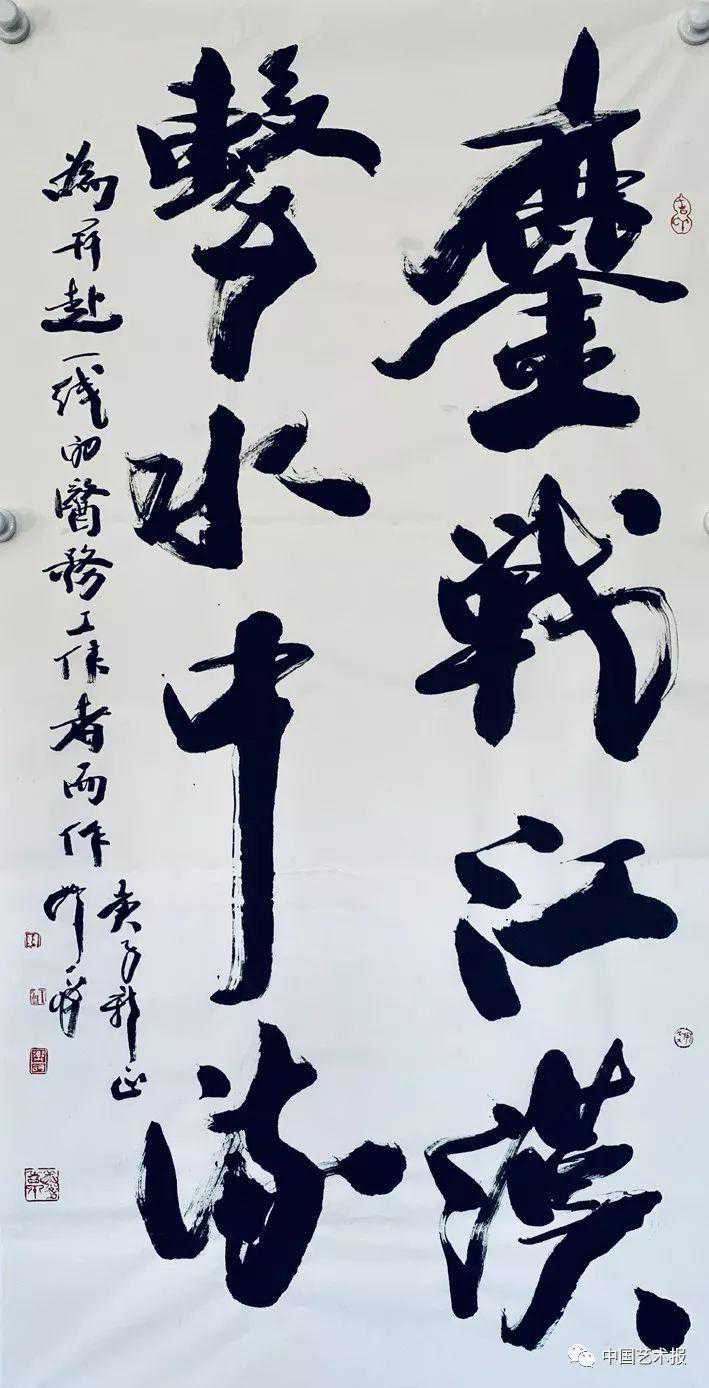 鏖戰江漢
擊水中流
為奔赴一线的醫務工作者而作
庚子新正
中国艺术报